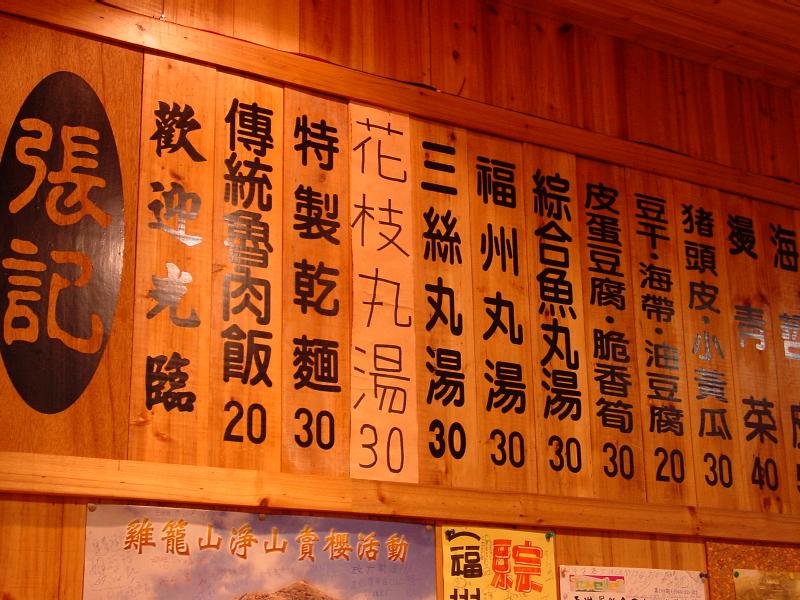 張記
歡迎光臨
傳統魯肉飯20
特製乾麵30
花枝丸湯30
三絲丸湯30
福州丸湯30
綜合魚丸湯30
皮蛋豆腐·脆香筍30
豆干·海帶·油豆腐20
豬頭皮·小黃瓜30
燙青菜40
海
雞籠山淨山賞櫻活動
(福州
綜